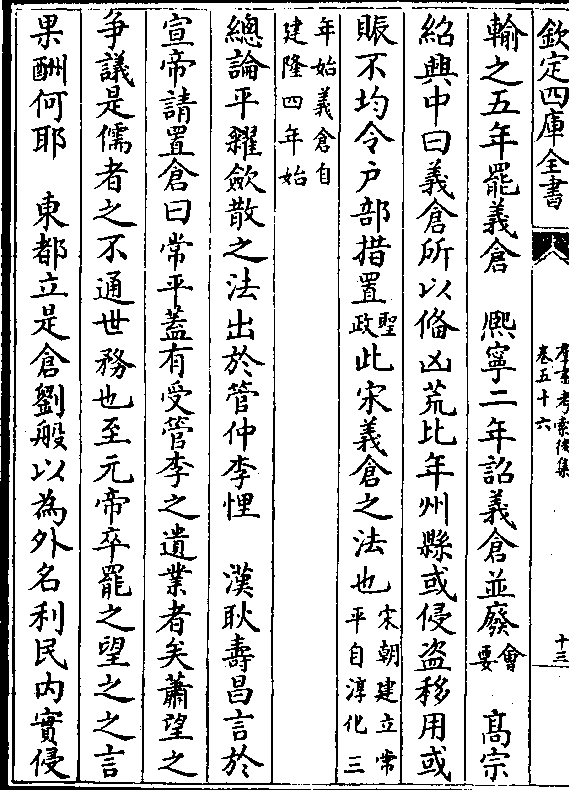 欽定四庫全書
羣書考索後集
卷五十六
十三
輸之五年罷義倉　熈寧二年詔義倉並廢會要　髙宗
紹興中曰義倉所以備凶荒比年州縣或侵盗移用或
賬不均令户部措置聖政此宋義倉之法也宋朝建立常平自淳化三
年始義倉自建隆四年始
總論平糴斂散之法出於管仲李悝　漢耿壽昌言於
宣帝請置倉曰常平蓋有受管李之遺業者矣蕭望之
争議是儒者之不通世務也至元帝卒罷之望之之言
果酬何耶　東都立是倉劉般以為外名利民内實侵